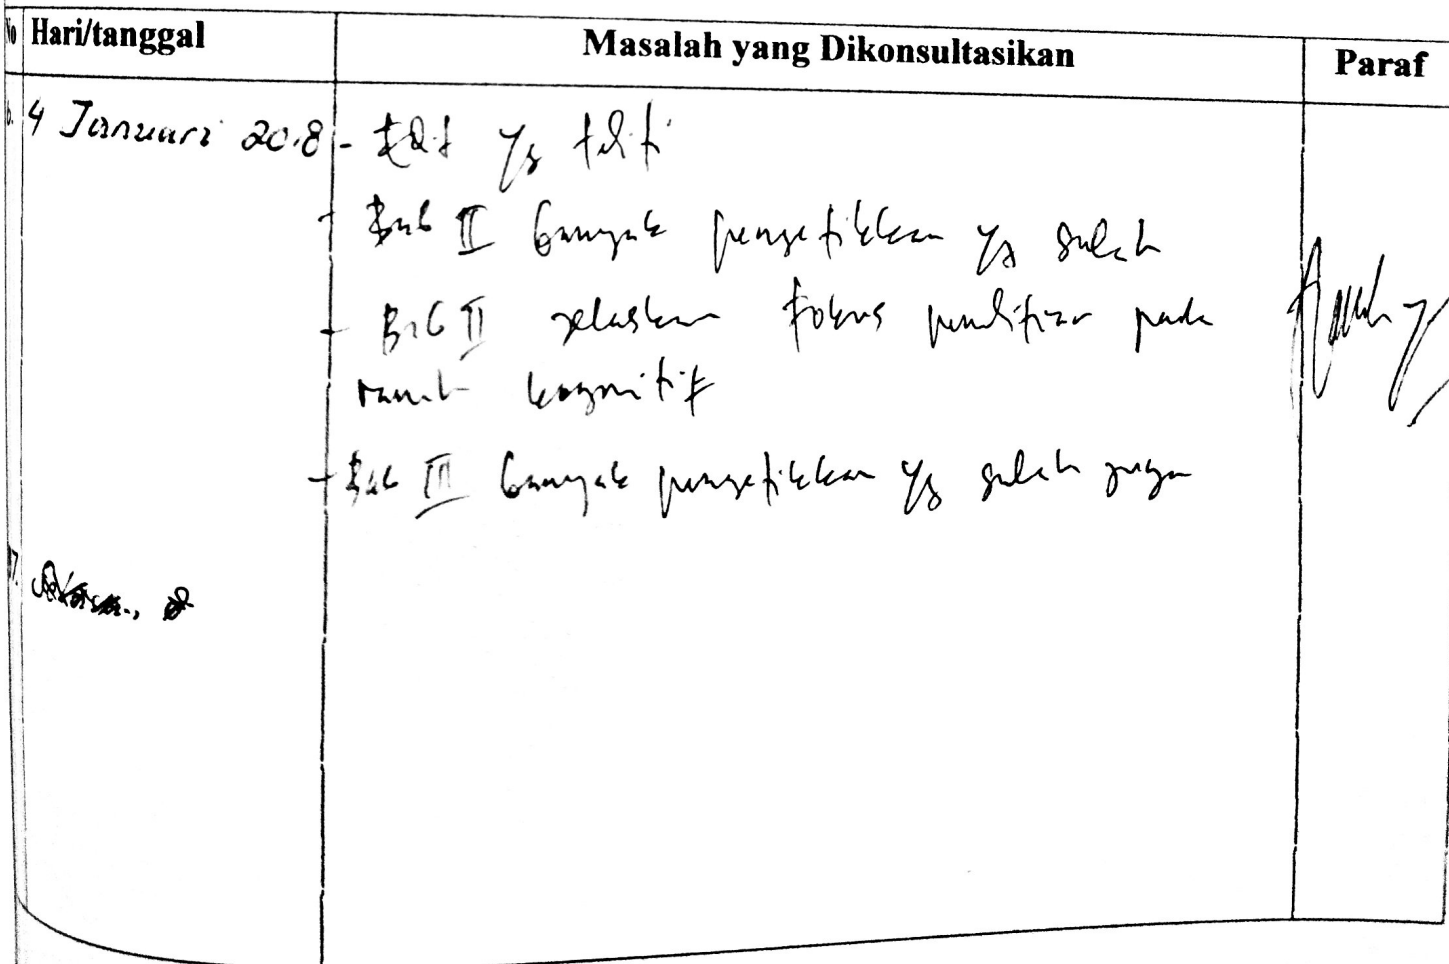 No Hari/tanggal Masalah yang Dikonsultasikan Paraf
6. 4 Januari 2018 - Edit yg teliti
- Bab II banyak pengetikkan yg salah
- Bab II jelaskan fokus penelitian pada
ranah kognitif
- Bab III banyak pengetikkan yg salah juga
17.